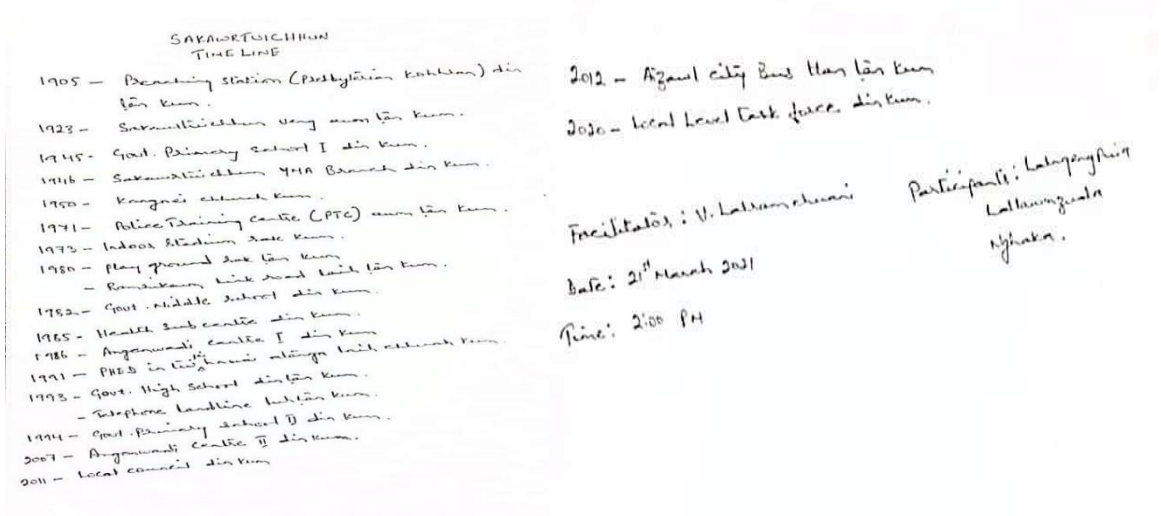 SAKAWRTUICHHUN
TIME LINE
1905 – Preaching Station (Presbyterian Kohhran) din
ṭan kum.
1923 – Sakawrtuichhun veng awm ṭan kum.
1945 - Govt. Primary School I din kum.
1946 – Sakawrtuichhun YMA Branch din kum.
1950 – kum.
1971 – Police Training Centre (PTC) awm ṭan kum.
1973 – Indoor Stadium sak kum.
1980 – Play ground sak ṭan kum
– Link road laih ṭan kum.
1982 – Govt. Middle School din kum.
1985 – Health Sub centre din kum.
1986 – Anganwadi Centre I din kum
1991 – PHED in laih chhuah kum.
1993 – Govt. High School din ṭan kum.
– Telephone landline luh ṭan kum.
1994 – Govt. Primary School II din kum.
2007 – Anganwadi Centre II din kum.
2011 – Local council din kum
2012 – Aizawl city Bus tlan ṭan kum
2020 – Local Level Task force din kum.
Facilitator: V. Lalramchuani
Date: 21st March 2021
Time: 2:00 PM
Participants:
Nghaka.